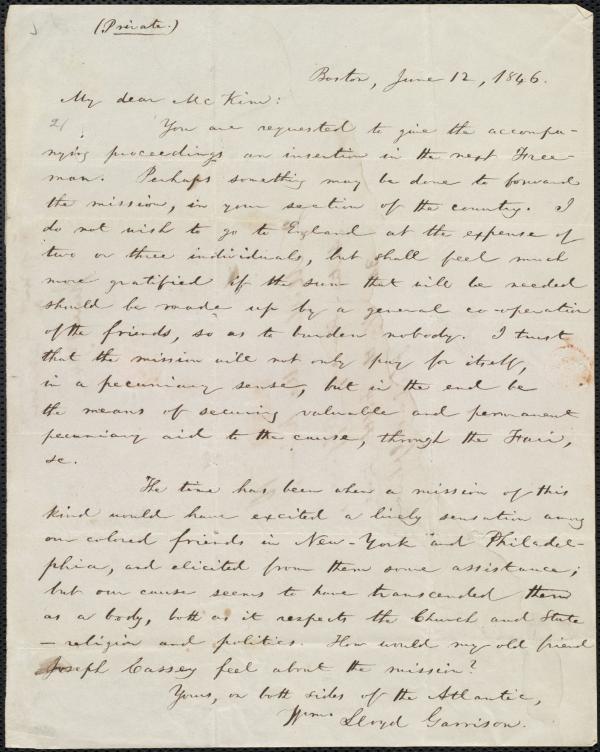 (Private.)
Boston, June 12, 1846.
My dear McKim:
You are requested to give the accompa-
nying proceedings an insertion in the next Free-
man. Perhaps something may be done to forward
the mission, in your section of the country. I
do not wish to go to England at the expense of
two or three individuals, but shall feel much
more gratified if the sum that will be needed
should be made up by a general co-operation
of the friends, so as to burden nobody. I trust
that the mission will not only pay for itself,
in a pecuniary sense, but in the end be
the means of securing valuable and permanent
pecuniary aid to the cause, through the Fair,
&c.
The time has been when a mission of this
kind would have excited a lively sensation among
our colored friends in New-York and Philadel-
phia, and elicited from them some assistance;
but our cause seems to have transcended them
as a body, both as it respects the Church and State
— religion and politics. How would my old friend
Joseph Cassey feel about the mission?
Yours, on both sides of the Atlantic,
Wm. Lloyd Garrison.